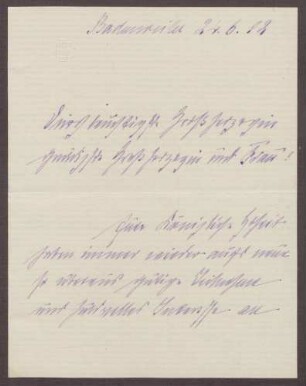 Badenweiler 21.6.82
Durchlauchtigste Großherzogin
gnädigste Großherzogin und Frau!
Eure Königliche Hoheit
haben immer wieder aufs neue
so überaus gütige Teilnahme
und huldvolles Interesse an